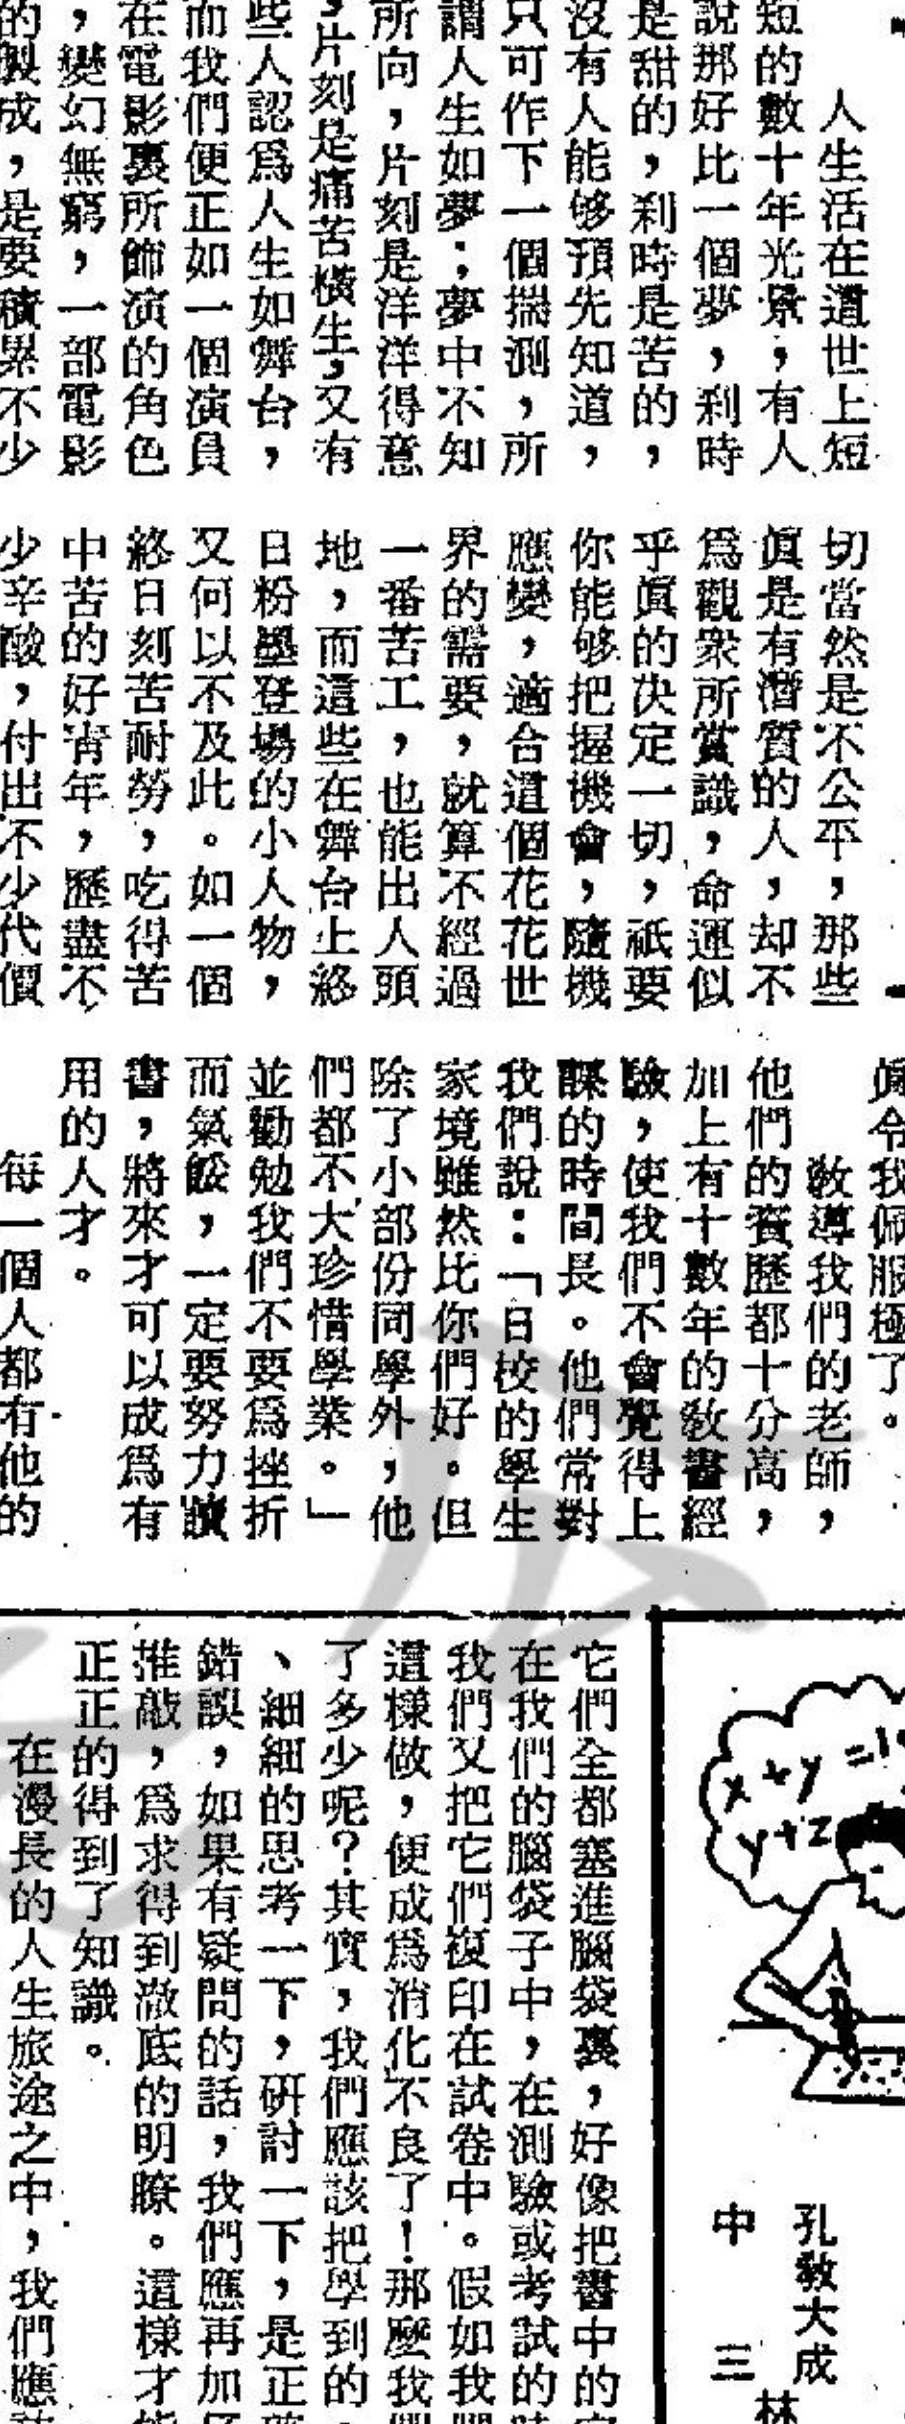 人生活在這世上短
短的數十年光景，有人
說那好比一個夢，剎時
是甜的，剎時是苦的，
沒有人能够預先知道，
只可作下一個揣測，所
謂人生如夢；夢中不知
所向，片刻是洋洋得意
，片刻是痛苦橫生，又有
些人認爲人生如舞台，
而我們便正如一個演員
在電影裏所飾演的角色
，變幻無窮，一部電影
的製成，是要積累不少
切當然是不公平，那些
眞是有潛質的人，却不
爲觀衆所賞識，命運似
乎眞的决定一切，祇要
你能够把握機會，隨機
應變，適合這個花花世
界的需要，就算不經過
一番苦工，也能出人頭
地，而這些在舞台上終
日粉墨登場的小人物，
又何以不及此。如一個
終日刻苦耐勞，吃得苦
中苦的好青年，歷盡不
少辛酸，付出不少代價
眞令我佩服極了。
敎導我們的老師，
他們的資歷都十分高，
加上有十數年的敎書經
驗，使我們不會覺得上
課的時間長。他們常對
我們說：「日校的學生
家境雖然比你們好。但
除了小部份同學外，他
們都不大珍惜學業。」
並勸勉我們不要爲挫折
而氣餒，一定要努力讀
書，將來才可以成爲有
用的人才。
每一個人都有他的
x+y=1
y+z
孔敎大成
中三 林
它們全都塞進腦袋裏，好像把書中的
在我們的腦袋子中，在測驗或考試的時
我們又把它們複印在試卷中。假如我們
這樣做，便成爲消化不良了！那麼我們
了多少呢？其實，我們應該把學到的，
、細細的思考一下，研討一下，是正確
錯誤，如果有疑問的話，我們應再加
推敲，爲求得到澈底的明瞭。這樣才能
正正的得到了知識。
在漫長的人生旅途之中，我們應該